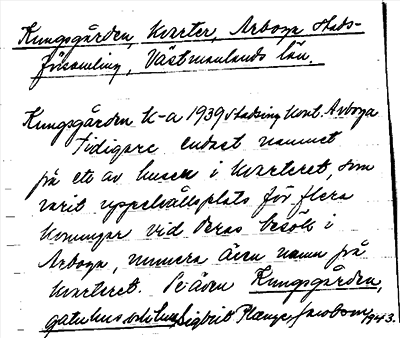 Kungsgården, kvarter, Arboga stads-
församling, Västmanlands län.
Kungsgården K-a 1939 Kont. Arboga
Tidigare endast namnet
på ett av husen i kvarteret, som
varit uppehållsplats för flera
konungar vid deras besök i
Arboga, numera även namn på
kvarteret. Se även Kungsgården,
gatuhus Sigbrit Plænge Jacobson 1943.